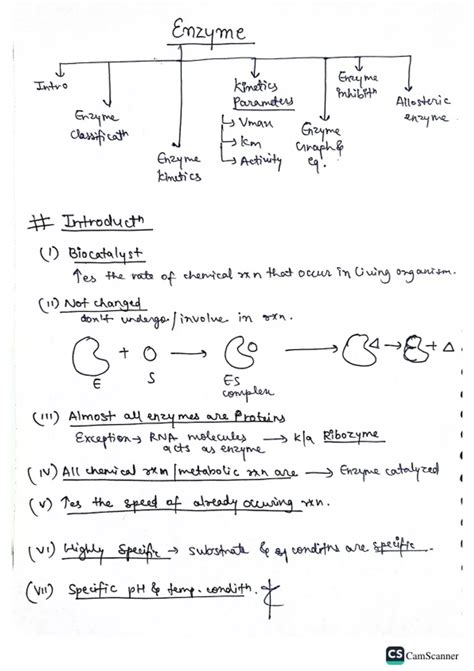 Enzyme
Intro
Enzyme
Classificatn
Enzyme
Kinetics
Kinetics
Parameters
↳ Vmax
↳ Km
↳ Activity
Enzyme
Graph &
eq.
Enzyme
inhibitn
Allosteric
enzyme
# Introductn
(I) Biocatalyst
↑es the rate of chemical rxn that occur in living organism.
(II) Not changed
don't undergo/involve in rxn.
E + S → ES
complex → → + Δ
(III) Almost all enzymes are Proteins
Exception → RNA molecules → k/a Ribozyme
acts as enzyme
(IV) All chemical rxn/metabolic rxn are → Enzyme catalyzed
(V) ↑es the speed of already occuring rxn.
(VI) Highly Specific → substrate & conditns are specific.
(VII) Specific pH & temp. conditn.
CS CamScanner